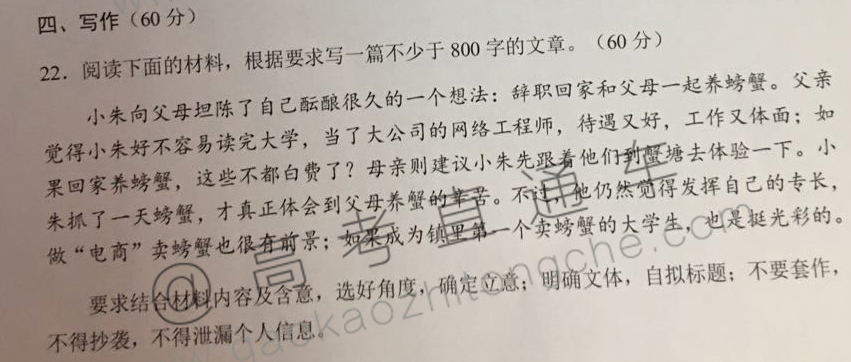 四、写作(60 分)
22．阅读下面的材料，根据要求写一篇不少于 800 字的文章。(60 分)
小朱向父母坦陈了自己酝酿很久的一个想法：辞职回家和父母一起养螃蟹。父亲
觉得小朱好不容易读完大学，当了大公司的网络工程师，待遇又好，工作又体面；如
果回家养螃蟹，这些不都白费了？母亲则建议小朱先跟着他们到蟹塘去体验一下。小
朱抓了一天螃蟹，才真正体会到父母养蟹的辛苦。不过，他仍然觉得发挥自己的专长，
做“电商”卖螃蟹也很有前景；如果成为镇里第一个卖螃蟹的大学生，也是挺光彩的。
要求结合材料内容及含意，选好角度，确定立意；明确文体，自拟标题；不要套作，
不得抄袭，不得泄漏个人信息。
@高考直通车
www.gaokaozhitongche.com